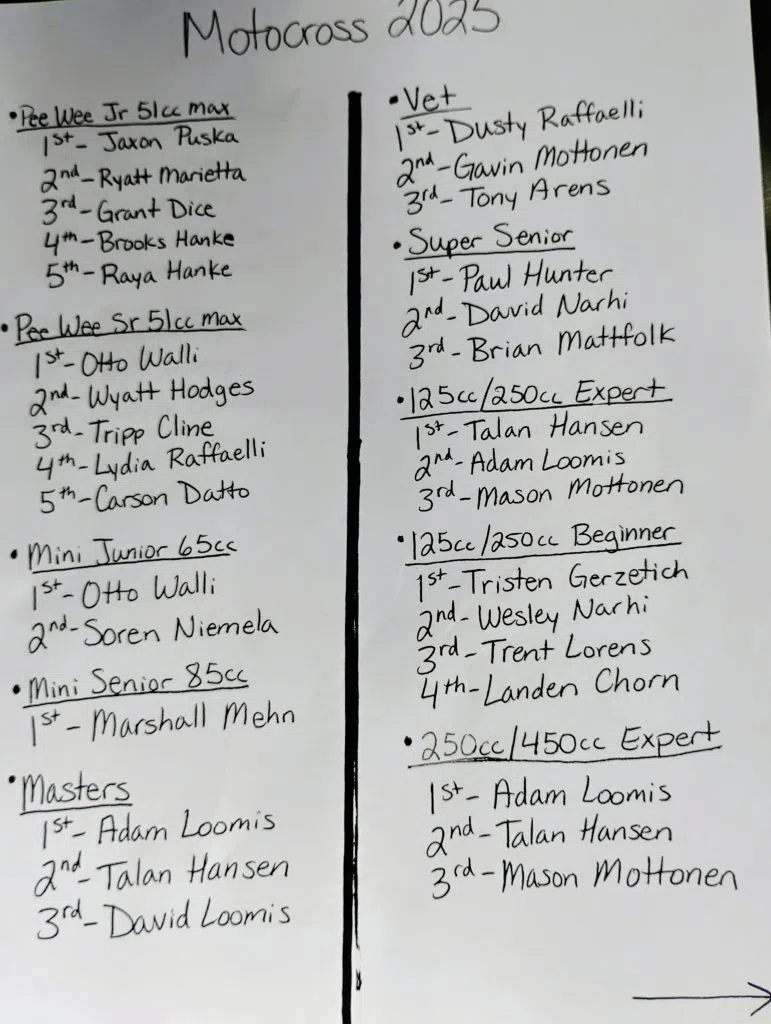 Motocross 2025
• Pee Wee Jr 51cc max
1st - Jaxon Puska
2nd - Ryatt Marietta
3rd - Grant Dice
4th - Brooks Hanke
5th - Raya Hanke
• Pee Wee Sr 51cc max
1st - Otto Walli
2nd - Wyatt Hodges
3rd - Tripp Cline
4th - Lydia Raffaelli
5th - Carson Datto
• Mini Junior 65cc
1st - Otto Walli
2nd - Soren Niemela
• Mini Senior 85cc
1st - Marshall Mehn
• Masters
1st - Adam Loomis
2nd - Talan Hansen
3rd - David Loomis
• Vet
1st - Dusty Raffaelli
2nd - Gavin Mottonen
3rd - Tony Arens
• Super Senior
1st - Paul Hunter
2nd - David Narhi
3rd - Brian Mattfolk
• 125cc/250cc Expert
1st - Talan Hansen
2nd - Adam Loomis
3rd - Mason Mottonen
• 125cc/250cc Beginner
1st - Tristen Gerzetich
2nd - Wesley Narhi
3rd - Trent Lorens
4th - Landen Chorn
• 250cc/450cc Expert
1st - Adam Loomis
2nd - Talan Hansen
3rd - Mason Mottonen